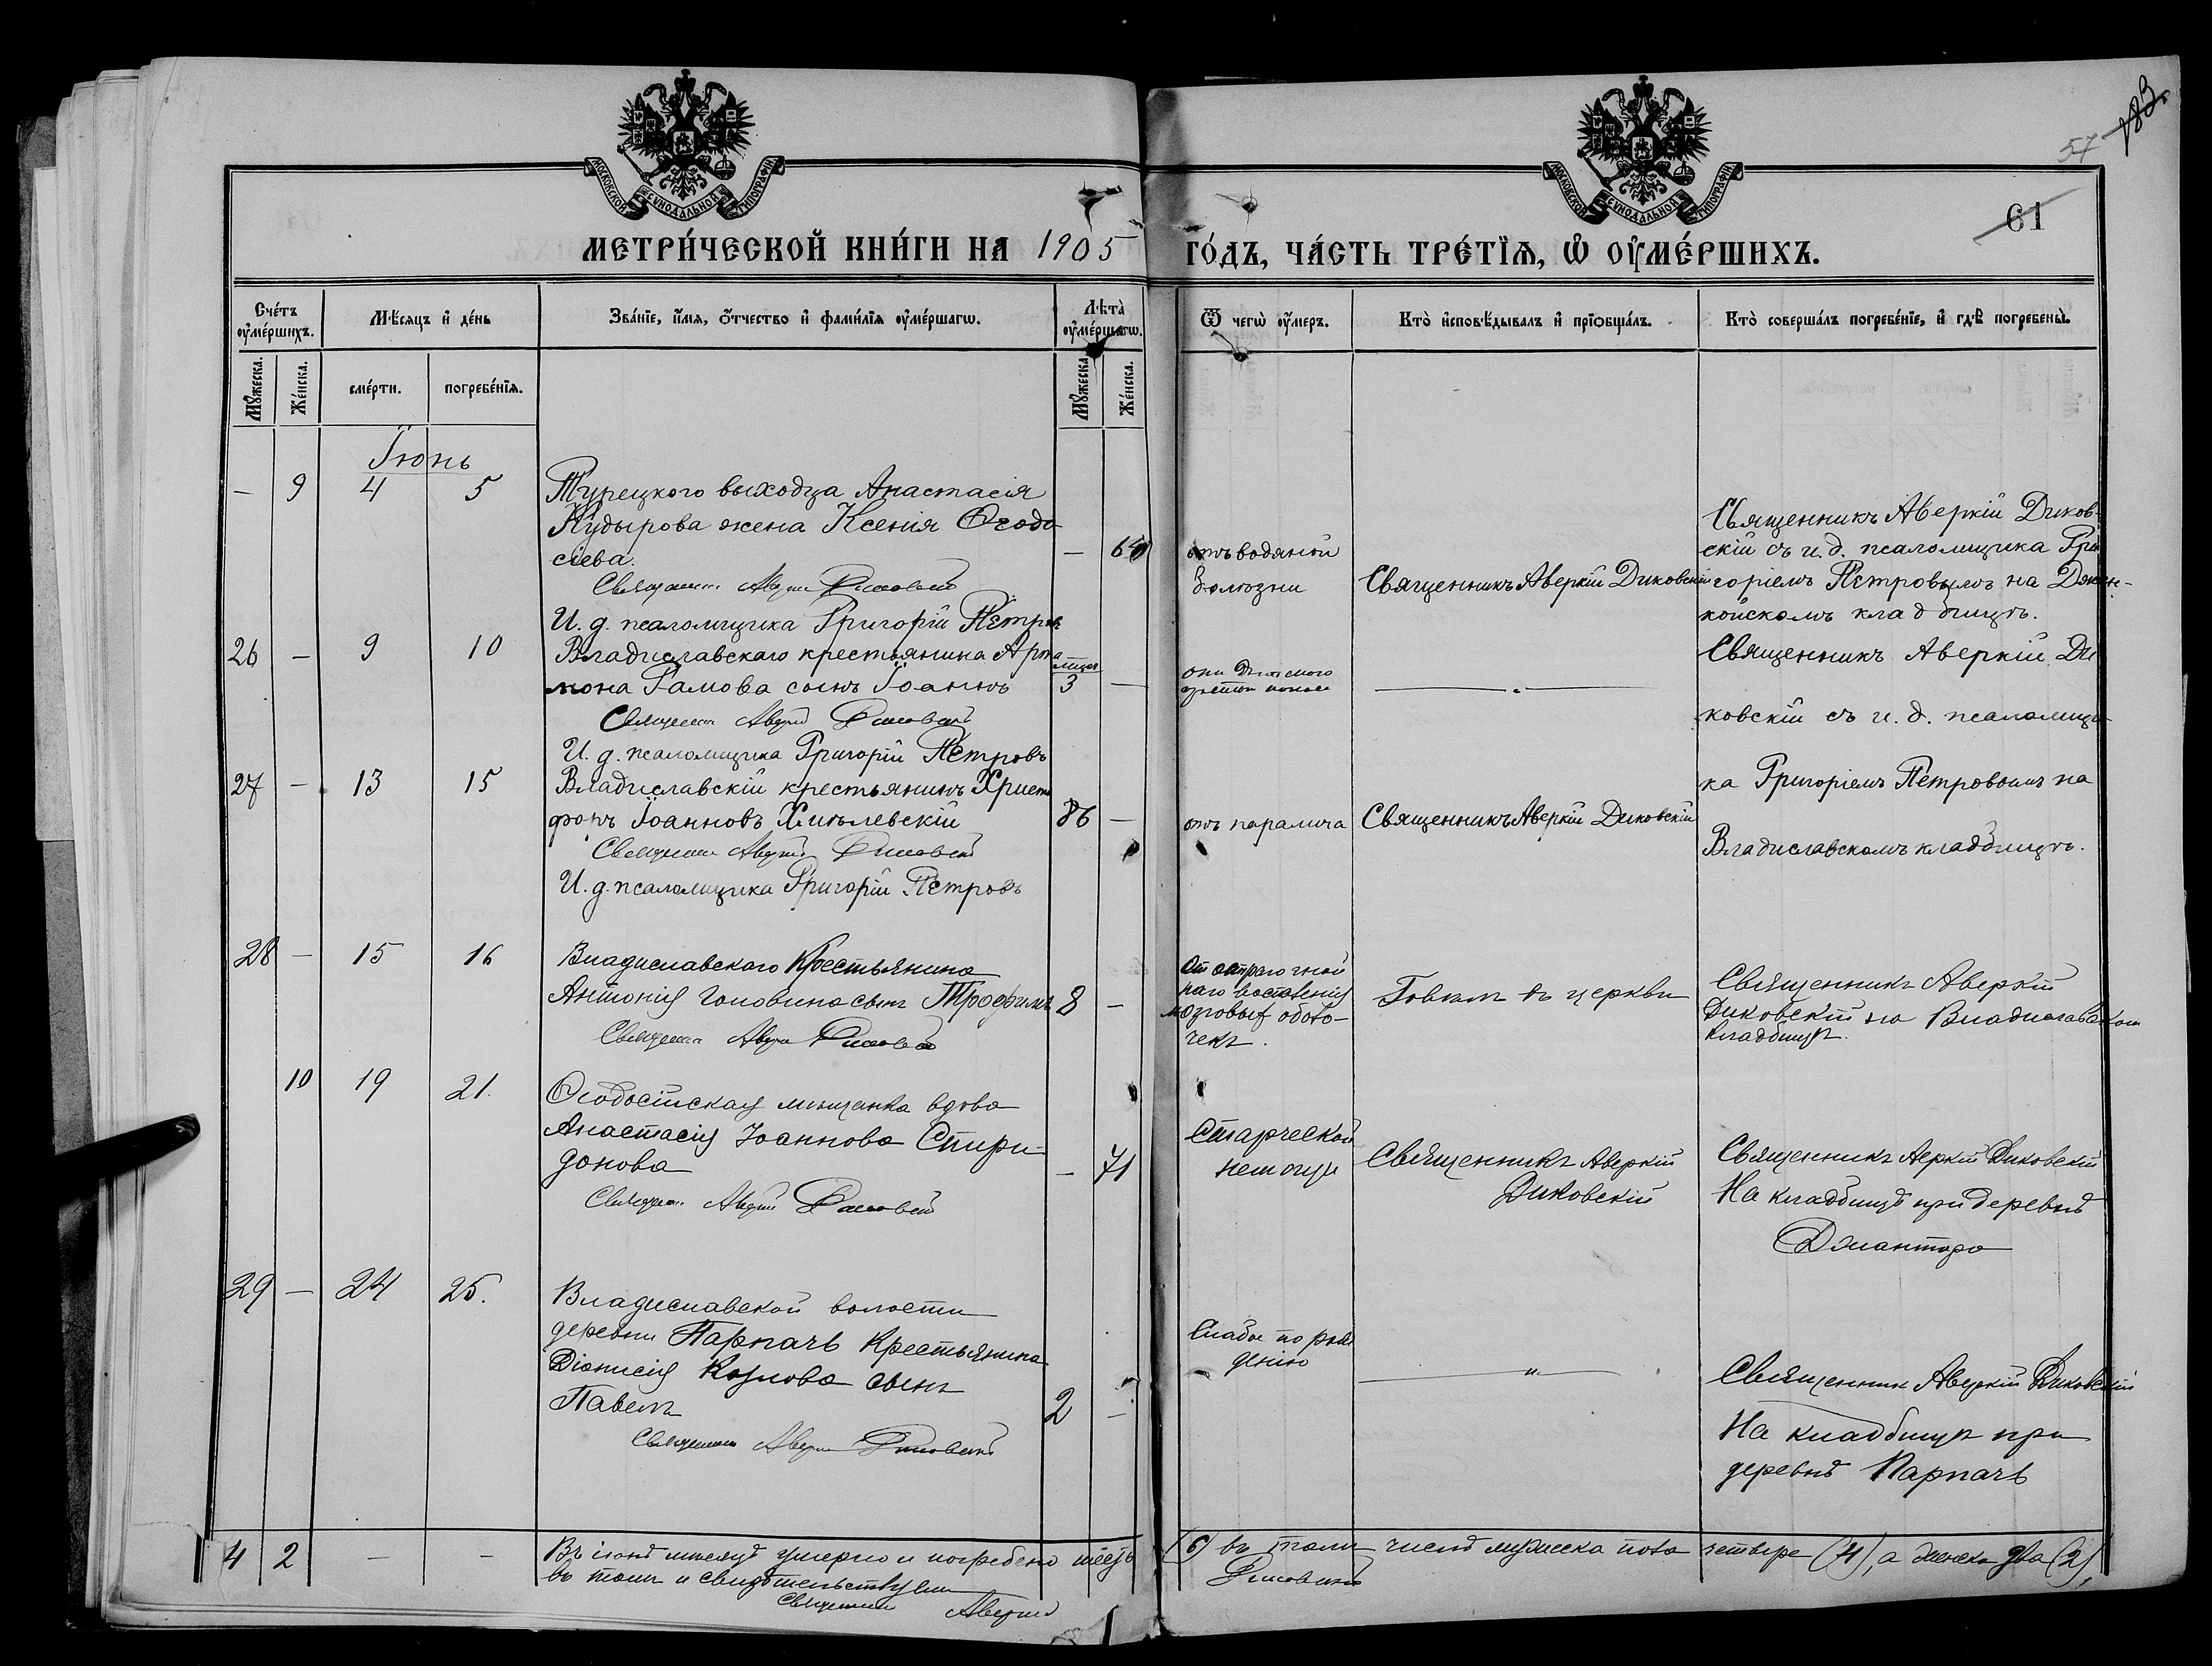 МОСКОВСКОЙ СѴНОДАЛЬНОЙ ТИПОГРАФІИ
МОСКОВСКОЙ СѴНОДАЛЬНОЙ ТИПОГРАФІИ
57
183
61
МЕТРИ́ЧЕСКОЙ КНИ́ГИ НА 1905 ГО́ДЪ, ЧА́СТЬ ТРЕ́ТЇѦ, Ѡ҆ ОУ҆МЕ́РШИХЪ.
Сче́тъ оу҆ме́ршихъ.
Мѣ́сяцъ и҆ де́нь
Зва́нїе, и҆́мя, ѻ҆́тчество и҆ фами́лїя оу҆ме́ршагѡ.
Лѣ́та оу҆ме́ршагѡ.
Ѿ чегѡ̀ оу҆́меръ.
Кто̀ и҆сповѣ́дывалъ и҆ прїѻбща́лъ.
Кто̀ соверша́лъ погребе́нїе, и҆ гдѣ̀ погребены̀.
Мꙋ́жеска.
Же́нска.
сме́рти.
погребе́нїя.
Мꙋ́жеска.
Же́нска.
Іюнь
— 9 4 5
Турецкого выходца Анастасія
Кудырова жена Ксенія Ѳеодо
сіева.
Священникъ Аверкій Диковскій
И. д. псаломщика Григорій Петровъ
—
отъ водяной
болѣзни
Священникъ Аверкій Диковскій
Священникъ Аверкій Диков-
скій съ и. д. псаломщика Гри
горіемъ Петровымъ на Джан-
койскомъ кладбищѣ.
26 — 9 10
Владиславскаго крестьянина Арта
мона Гамова сынъ Іоаннъ
Священникъ Аверкій Диковскій
И. д. псаломщика Григорій Петровъ
3 —
Священникъ Аверкій Ди
ковскій съ и. д. псаломщи-
ка Григоріемъ Петровымъ на
Владиславскомъ кладбищѣ.
27 — 13 15
Владиславскій крестьянинъ Христо
форъ Іоанновъ Хмѣлевскій
Священникъ Аверкій Диковскій
И. д. псаломщика Григорій Петровъ
86 —
отъ паралича
Священникъ Аверкій Диковскій
28 — 15 16
Владиславскаго Крестьянина
Антонія Головина сынъ Трофимъ
Священникъ Аверкій Диковскій
8 —
мозговых оболо-
чекъ.
Говѣлъ въ церкви
Священникъ Аверкій
Диковскій на Владиславском
кладбищѣ.
10 19 21.
Ѳеодосійская мѣщанка вдова
Анастасія Іоаннова Спири-
донова
Священникъ Аверкій Диковскій
— 71
Старческой
немощи
Священникъ Аверкій
Диковскій
Священникъ Аеркій Диковскій
На кладбищѣ при деревнѣ
29 — 24 25.
Владиславской волости
деревни Парпачъ Крестьянина
Діонисія Козлова сынъ
Павелъ
Священникъ Аверкій Диковскій
2 —
Слабое по рож
денію
Священникъ Аверкій Диковскій
На кладбищѣ при
деревнѣ Парпачъ
4 2 — —
Въ іюнѣ мѣсяцѣ умерло и погребено шесть (6) въ томъ числѣ мужеска пола четыре (4), а женска два (2),
въ томъ и свидѣтельствуемъ
Священникъ Аверкій Диковскій